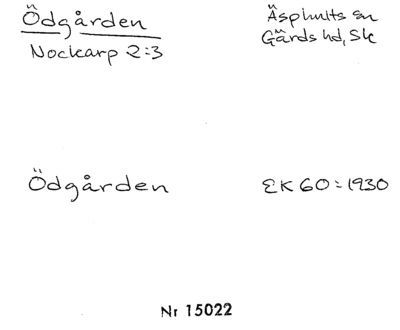 Ödgården
Nockarp 2:3
Äsphults sn
Gärds hd, Sk
Ödgården
EK 60 = 1930
Nr 15022